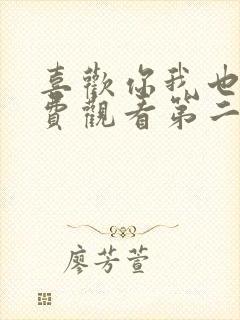 喜歡你我也
費觀看第二
廖芳萱